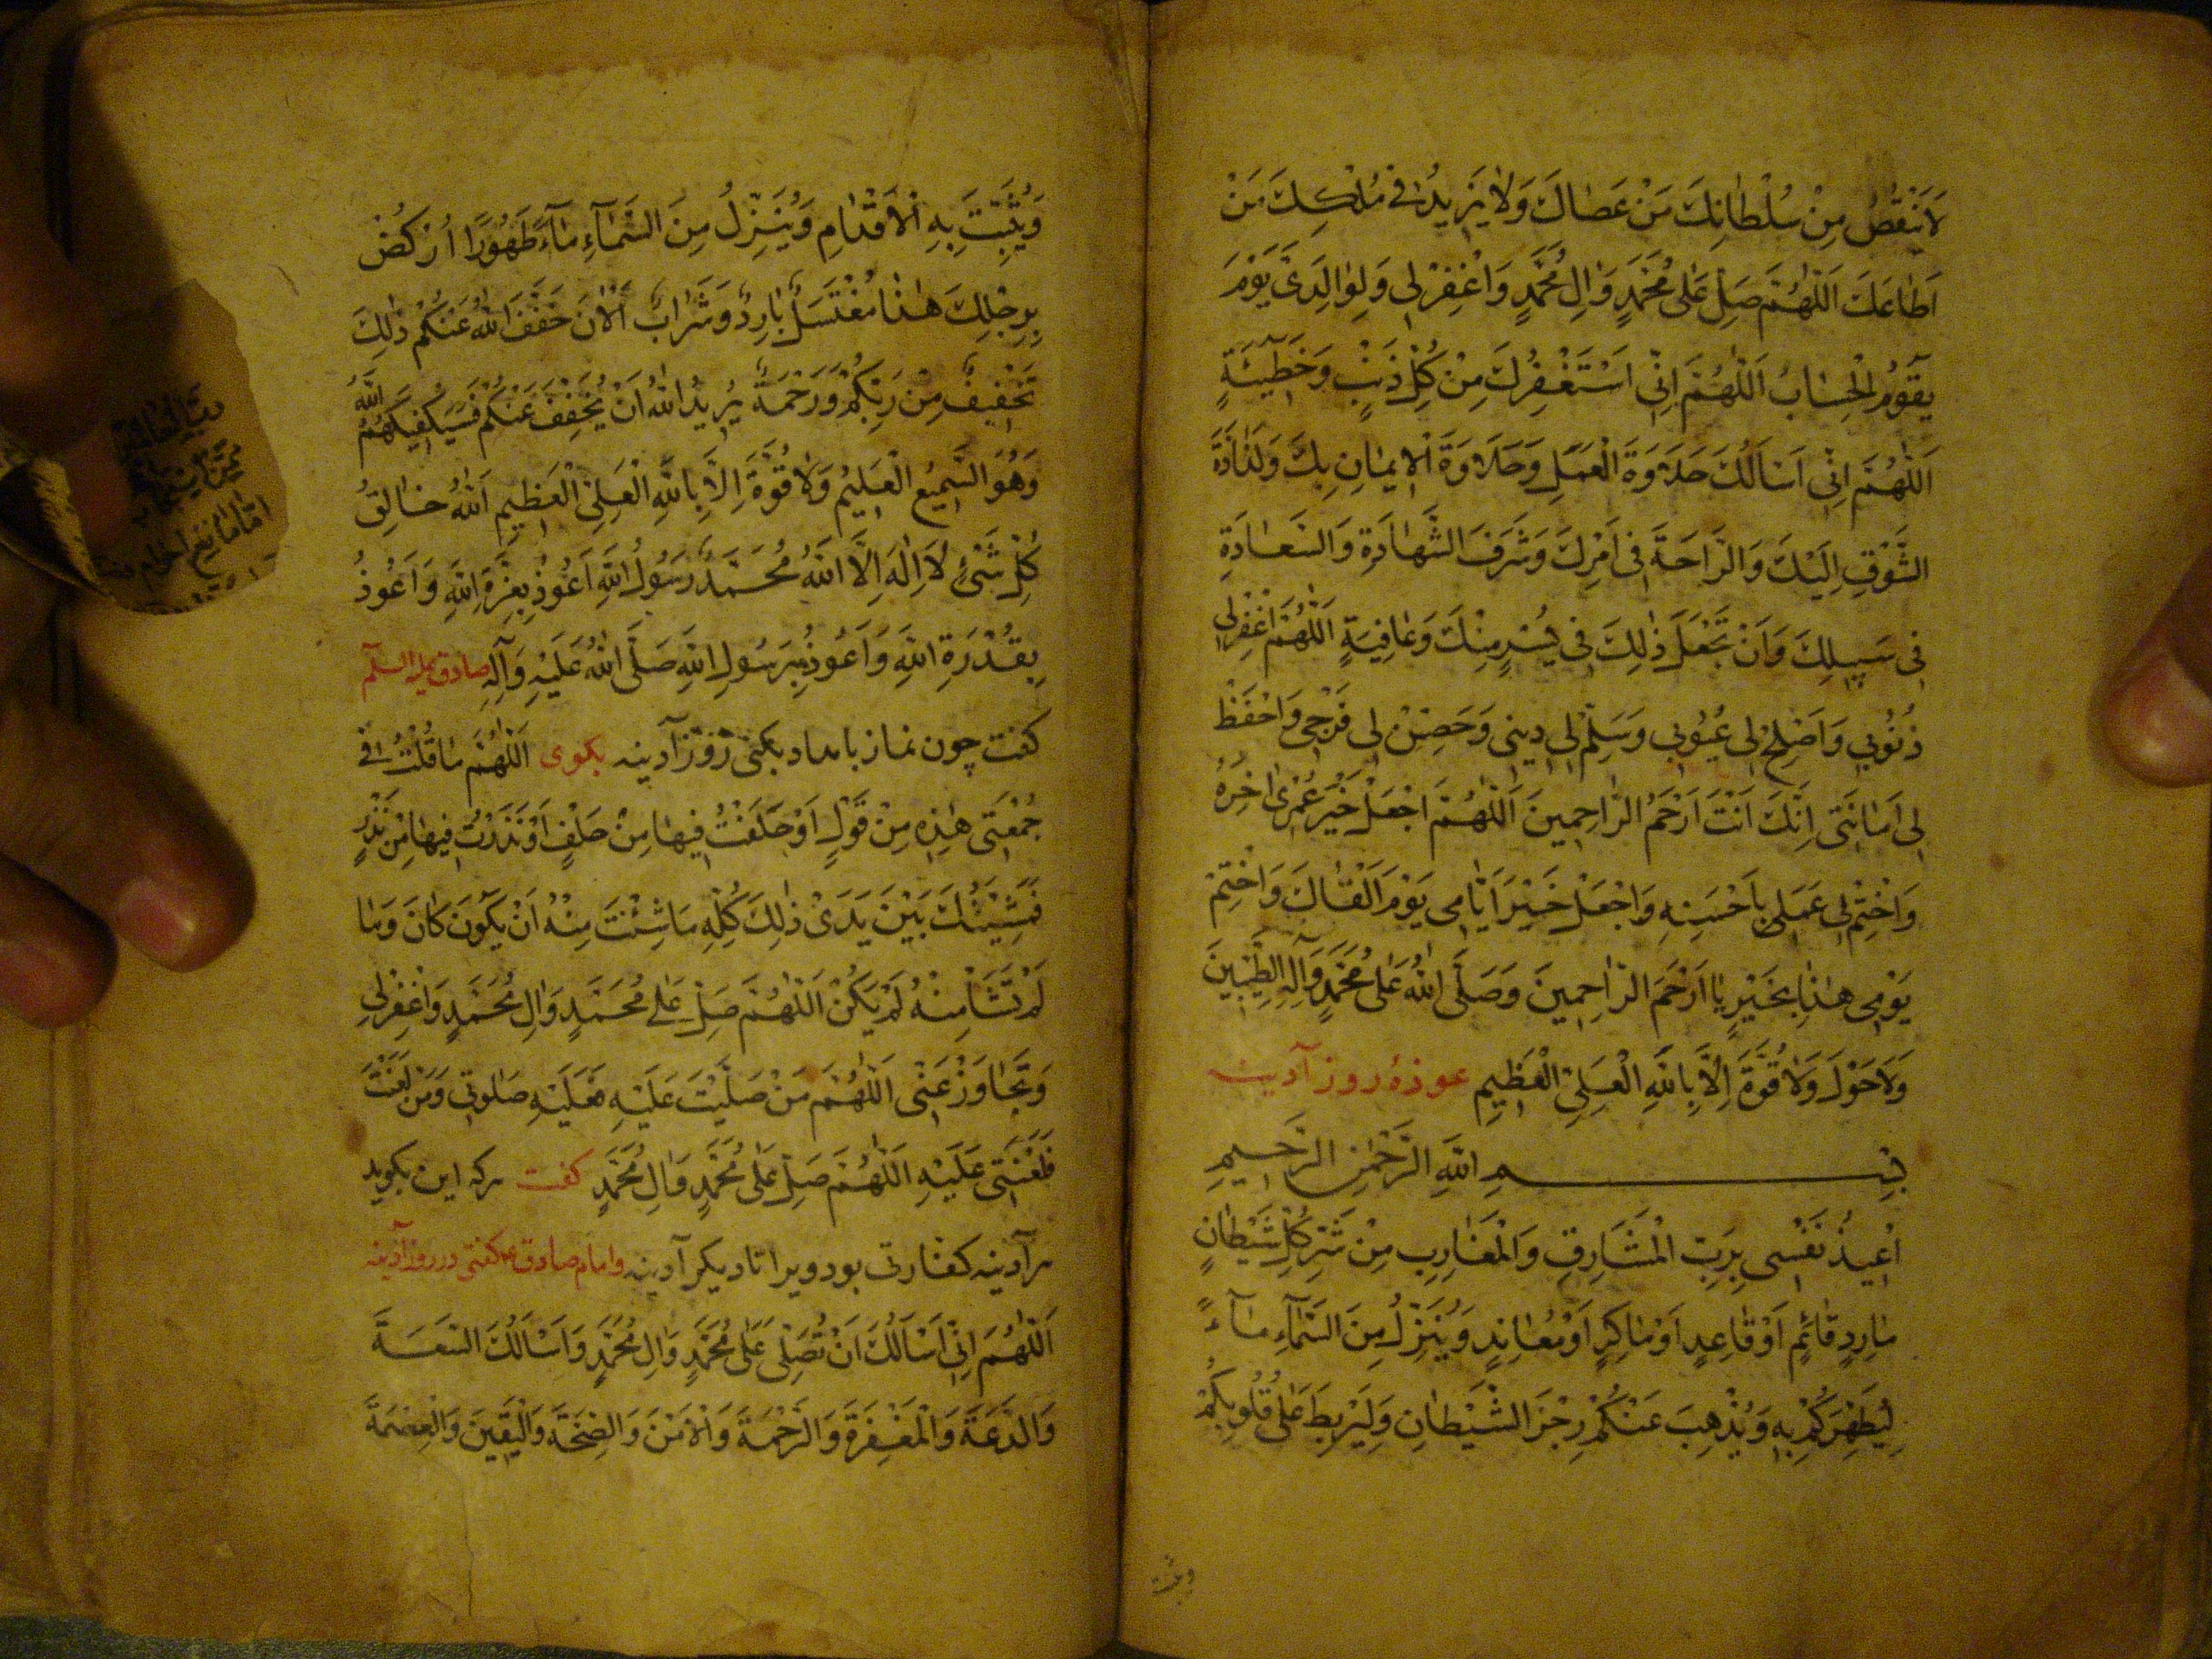 لَا يَنْقُصُ مِنْ سُلْطَانِكَ مَنْ عَصَاكَ وَلَا يَزِيدُ فِي مُلْكِكَ مَنْ
اَطَاعَكَ اَللّٰهُمَّ صَلِّ عَلٰى مُحَمَّدٍ وَاٰلِ مُحَمَّدٍ وَاغْفِرْ لِي وَلِوَالِدَيَّ يَوْمَ
يَقُومُ الْحِسَابُ اَللّٰهُمَّ اِنِّي اَسْتَغْفِرُكَ مِنْ كُلِّ ذَنْبٍ وَخَطِيئَةٍ
اَللّٰهُمَّ اِنِّي اَسْاَلُكَ حَلَاوَةَ الْعَمَلِ وَحَلَاوَةَ الْاِيمَانِ بِكَ وَلَذَاذَةَ
الشَّوْقِ اِلَيْكَ وَالرَّاحَةَ فِي اَمْرِكَ وَشَرَفَ الشَّهَادَةِ وَالسَّعَادَةِ
فِي سَبِيلِكَ وَاَنْ تَجْعَلَ ذٰلِكَ فِي يُسْرٍ مِنْكَ وَعَافِيَةٍ اَللّٰهُمَّ اغْفِرْ لِي
ذُنُوبِي وَاَصْلِحْ لِي عُيُوبِي وَسَلِّمْ لِي دِينِي وَحَصِّنْ لِي فَرْجِي وَاحْفَظْ
لِي اَمَانَتِي اِنَّكَ اَنْتَ اَرْحَمُ الرَّاحِمِينَ اَللّٰهُمَّ اجْعَلْ خَيْرَ عُمْرِي اٰخِرَهُ
وَاخْتِمْ لِي عَمَلِي بِاَحْسَنِهِ وَاجْعَلْ خَيْرَ اَيَّامِي يَوْمَ اَلْقَاكَ وَاخْتِمْ
يَوْمِي هٰذَا بِخَيْرٍ يَا اَرْحَمَ الرَّاحِمِينَ وَصَلَّى اللّٰهُ عَلٰى مُحَمَّدٍ وَاٰلِهِ الطَّيِّبِينَ
وَلَا حَوْلَ وَلَا قُوَّةَ اِلَّا بِاللّٰهِ الْعَلِيِّ الْعَظِيمِ عوذهٔ روز آدینه
بِسْمِ اللّٰهِ الرَّحْمٰنِ الرَّحِيمِ
اُعِيذُ نَفْسِي بِرَبِّ الْمَشَارِقِ وَالْمَغَارِبِ مِنْ شَرِّ كُلِّ شَيْطَانٍ
مَارِدٍ قَائِمٍ اَوْ قَاعِدٍ اَوْ مَاكِرٍ اَوْ مُعَانِدٍ وَيُنَزِّلُ مِنَ السَّمَاءِ مَاءً
لِيُطَهِّرَكُمْ بِهِ وَيُذْهِبَ عَنْكُمْ رِجْزَ الشَّيْطَانِ وَلِيَرْبِطَ عَلٰى قُلُوبِكُمْ
وَيُثَبِّتَ بِهِ الْاَقْدَامِ وَيُنَزِّلُ مِنَ السَّمَاءِ مَاءً طَهُورًا اُرْكُضْ
بِرِجْلِكَ هٰذَا مُغْتَسَلٌ بَارِدٌ وَشَرَابٌ اَلْاٰنَ خَفَّفَ اللّٰهُ عَنْكُمْ ذٰلِكَ
تَخْفِيفٌ مِنْ رَبِّكُمْ وَرَحْمَةٌ يُرِيدُ اللّٰهُ اَنْ يُخَفِّفَ عَنْكُمْ فَسَيَكْفِيكَهُمُ اللّٰهُ
وَهُوَ السَّمِيعُ الْعَلِيمُ وَلَا قُوَّةَ اِلَّا بِاللّٰهِ الْعَلِيِّ الْعَظِيمِ اَللّٰهُ خَالِقُ
كُلِّ شَيْءٍ لَا اِلٰهَ اِلَّا اللّٰهُ مُحَمَّدٌ رَسُولُ اللّٰهِ اَعُوذُ بِعِزَّةِ اللّٰهِ وَاَعُوذُ
بِقُدْرَةِ اللّٰهِ وَاَعُوذُ بِرَسُولِ اللّٰهِ صَلَّى اللّٰهُ عَلَيْهِ وَآلِهِ صادق علیه السلم
کفت چون نماز بامداد بکنی روز آدینه بکوی اَللّٰهُمَّ مَا قُلْتُ فِي
جُمُعَتِي هٰذِهِ مِنْ قَوْلٍ اَوْ حَلَفْتُ فِيهَا مِنْ حَلْفٍ اَوْ نَذَرْتُ فِيهَا مِنْ نَذْرٍ
فَمَشِيَّتُكَ بَيْنَ يَدَيْ ذٰلِكَ كُلِّهِ مَا شِئْتَ مِنْهُ اَنْ يَكُونَ كَانَ وَمَا
لَمْ تَشَأْ مِنْهُ لَمْ يَكُنْ اَللّٰهُمَّ صَلِّ عَلٰى مُحَمَّدٍ وَاٰلِ مُحَمَّدٍ وَاغْفِرْ لِي
وَتَجَاوَزْ عَنِّي اَللّٰهُمَّ مَنْ صَلَّيْتَ عَلَيْهِ فَعَلَيْهِ صَلٰوتِي وَمَنْ لَعَنْتَ
فَلَعْنَتِي عَلَيْهِ اَللّٰهُمَّ صَلِّ عَلٰى مُحَمَّدٍ وَاٰلِ مُحَمَّدٍ کفت هرکه این بکوید
هر آدینه کفارتی بود ویرا تا دیکر آدینه وامام صادق ع کفتی در روز آدینه
اَللّٰهُمَّ اِنِّي اَسْاَلُكَ اَنْ تُصَلِّيَ عَلٰى مُحَمَّدٍ وَاٰلِ مُحَمَّدٍ وَاَسْاَلُكَ السَّعَةَ
وَالدَّعَةَ وَالْمَغْفِرَةَ وَالرَّحْمَةَ وَالْاَمْنَ وَالصِّحَّةَ وَالْيَقِينَ وَالْعِصْمَةَ